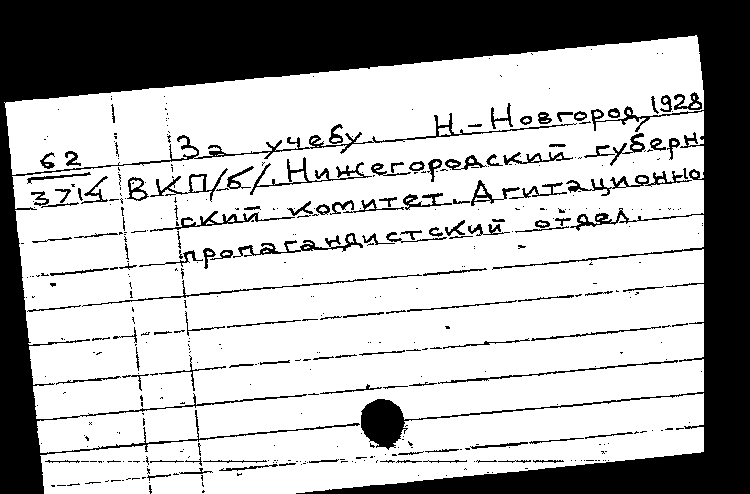 За учебу. Н.-Новгород, 1928
62
3714 ВКП/б/. Нижегородский губерн-
ский комитет. Агитационно-
пропагандистский отдел.